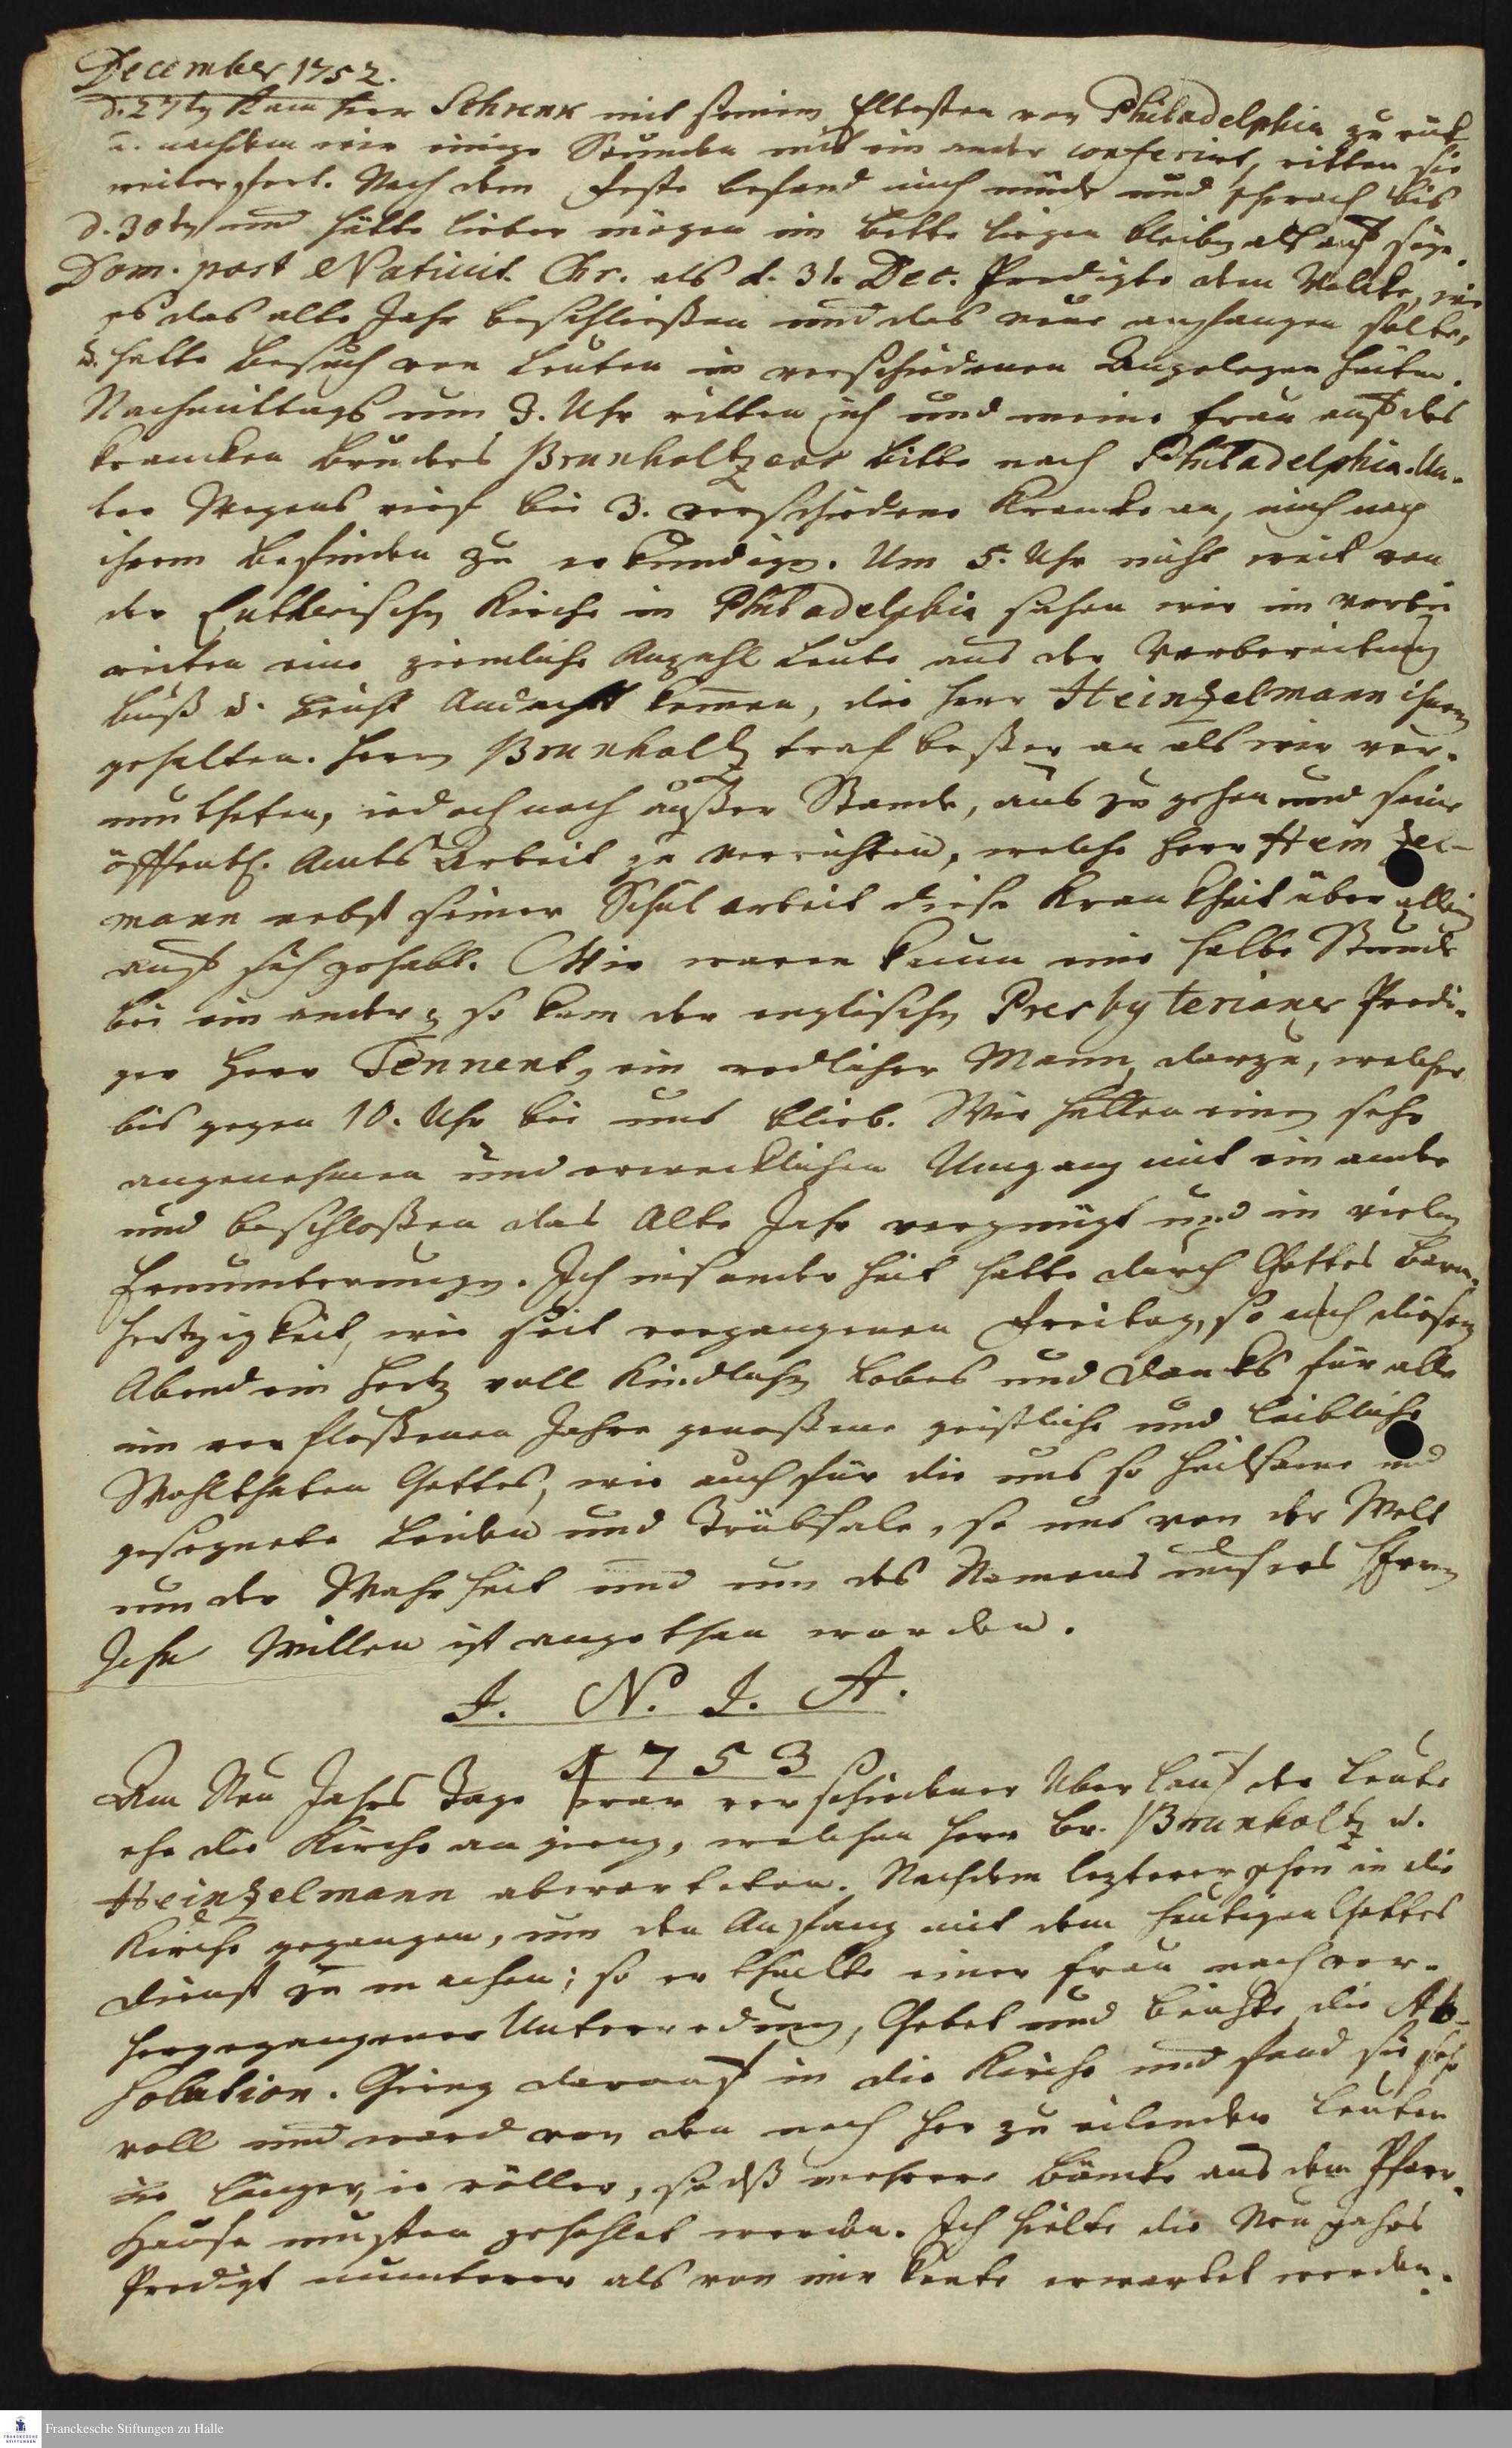 December 1752.
d. 27ty kam Herr Schrenk mit seinem Eltesten von Philadelphia zu rück
u. nachdem wir einige Stunden mit ein ander conferirt, ritten sie
weiter fort. Nach dem Feste befand mich müde und schwach bis
d. 30ty und hätte lieber mögen im Bette liegen bleiben als auf seyn.
Dom. post Nativit. Chr. als d. 31. Dec. Predigte dem Volcke, wie
es das alte Jahr beschließen und das neue anfangen solte,
u. hatte Besuch von Leuten in verschiedenen Angelegenheiten.
Nachmittags um 3. Uhr ritten ich und meine Frau auf des
krancken Bruders Brunholtzens Bitte nach Philadelphia. Un-
ter Wegens rief bei 3. verschiedene Krancke an, mich nach
ihrem Befinden zu erkundigen. Um 5. Uhr nicht weit von
der Lutherischen Kirche in Philadelphia sahen wir im vorbei
reiten eine ziemliche Anzahl Leute aus der Vorbereitung
Buß u. Beicht Andacht kommen, die Herr Heinzelmann ihnen
gehalten. Herrn Brunholtz traf beßer an als wir ver-
mutheten, iedoch noch außer Stande, aus zu gehen und seine
öffentl. Amts Arbeit zu verrichten, welche Herr Heinzel-
mann nebst seiner Schularbeit diese Kranckheit über allein
auf sich gehabt. Wir waren kaum eine halbe Stunde
bei ein ander, so kam der englischen Presbyterianer Predi-
ger Herr Tennent, ein redlicher Mann, darzu, welcher
bis gegen 10. Uhr bei uns blieb. Wir hatten einen sehr
angenehmen und erwecklichen Umgang mit ein ander
und beschloßen das Alte Jahr vergnügt und in vielen
Ermunterungen. Ich insonderheit hatte durch Gottes Barm-
hertzigkeit, wie seit vergangenen Freitag, so auch diesen
Abend ein Hertz voll Kindlichen Lobes und Dancks für alle
im verfloßenen Jahre genoßene geistliche und leibliche
Wohlthaten Gottes, wie auch für die uns so heilsame und
gesegnete Leiden und Trübsale, so uns von der Welt
um der Wahrheit und um des Namens unsers HErrn
Jesu Willen ist angethan worden.
J. N. J. A.
1753
Am Neu Jahrs Tage war verschiedener Uberlauf der Leute
ehe die Kirche an gieng, welchen Herr Br. Brunholtz u.
Heinzelmann abwarteten. Nachdem lezterer schon in die
Kirche gegangen, um den Anfang mit dem heutigen Gottes
dienst zu machen; so ertheilte einer Frau nach vor-
hergegangener Unterredung, Gebet und Beichte die Ab-
solution. Gieng darauf in die Kirche und fand sie sehr
voll und ward von den nach her zu eilenden Leuten
ie länger, ie völler, so daß mehrere Bäncke aus dem Pfarr-
Hause musten gehohlet werden. Ich hielte die Neu Jahrs
Predigt munterer als von mir konte erwartet werden.
Franckesche Stiftungen zu Halle